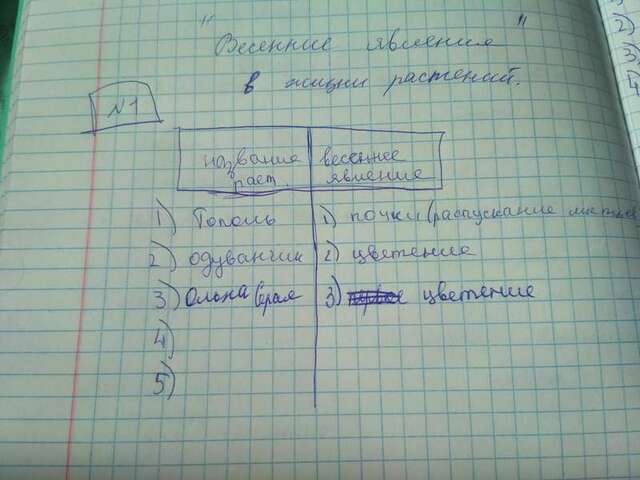 "Весенние явления"
в жизни растений.
N1
название раст. весеннее явление
1) Тополь 1) почки (распускание листьев
2) одуванчик 2) цветение
3) Ольха (серая 3) цветение
4)
5)
2)
3)
4